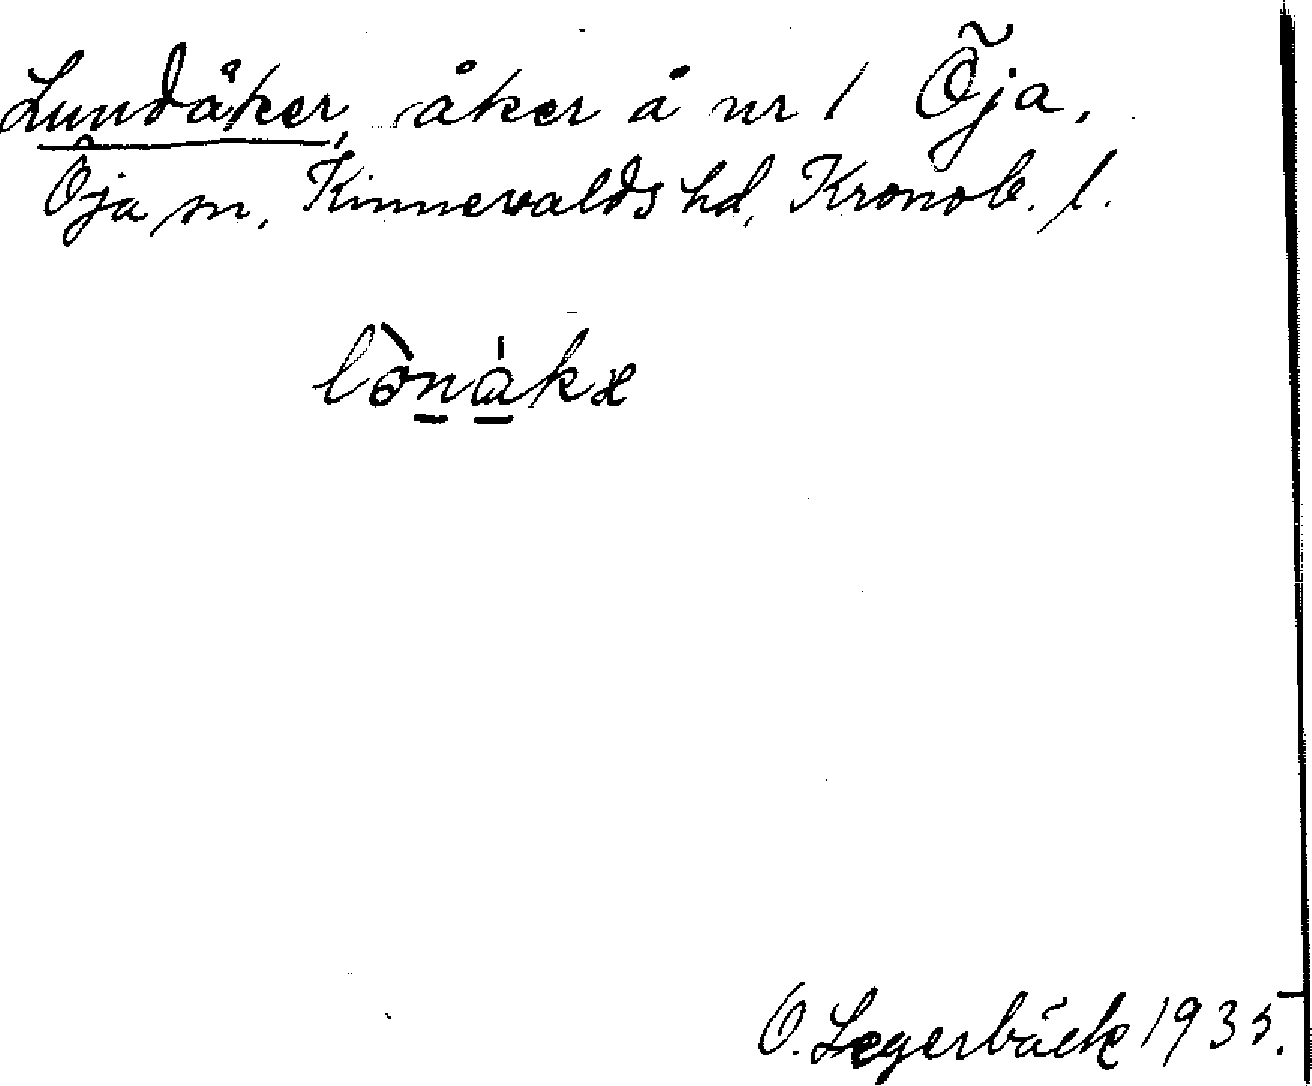 Lundåker, åker å nr 1 Öja,
Öja sn, Kinnevalds hd, Kronob. l.
O. Legerbäck 1935.